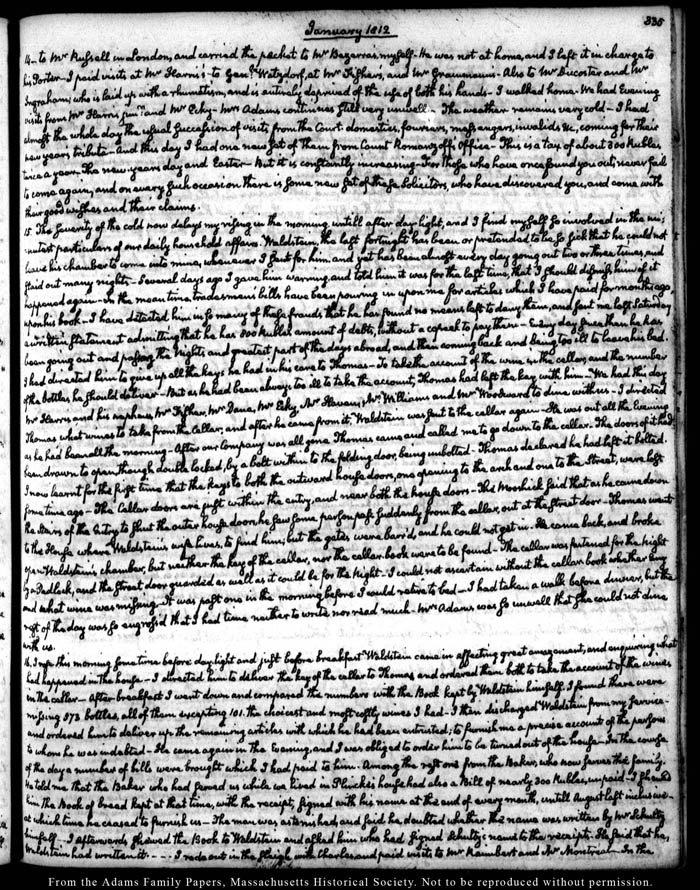 335
January 1812
14— to Mr Russell in London, and carried the packet to Mr Bezerra's myself. He was not at home, and I left it in charge to
his Porter — I paid visits at Mr Harris's — to Genl. Watzdorf, at Mr Fishers, and Mr Also to Mr Ducoster and Mr
Ingraham; who is laid up with a rhumatism, and is entirely deprived of the use of both his hands — I walked home. We had Evening
visits from Mr Harris junr. and Mr Ecky. Mrs Adams continues still very unwell — The weather remains very cold — I had
almost the whole day the usual succession of visits from the Court domestics, fouriers, messengers, invalids &c, coming for their
new years tribute — And this day I had one new set of them from Count Romanzoff's office — This is a tax of about 300 Rubles
twice a year. The new years day and Easter — But it is constantly increasing — For those who have once found you out, never fail
to come again, and on every such occasion there is some new set of these Solicitors, who have discovered you, and come with
their good wishes and their claims.
15. The severity of the cold now delays my rising in the morning, untill after day-light, and I find myself so involved in the mi-
nutest particulars of our daily household affairs. Waldstein, the last fortnight has been or pretended to be so sick that he could not
leave his chamber to come into mine, whenever I sent for him, and yet has been almost every day going out two or three times, and
staid out many nights — Several days ago I gave him warning, and told him it was for the last time, that I should dismiss him if it
happened again — In the mean time, tradesmen's bills have been pouring in upon me for articles which I have paid for months ago,
upon his book — I have detected him in so many of these frauds that he has found no means left to deny them, and sent me last Saturday
a written statement admitting that he has 800 Rubles amount of debts, without a copeck to pay them — Every day since then he has
been going out and passing the Nights, and greatest part of the days abroad, and then coming back and being too ill to leave his bed.
I had directed him to give up all the keys he had in his care to Thomas — To take the account of the wine in the cellar, and the number
of the bottles, he should deliver — But as he had been always too ill to take the account, Thomas had left the key with him — We had this day
Mr Harris and his nephew, Mr Fisher, Mr Dana, Mr Eckey, Mr Hawan, Mr Williams and Mr Woodward to dine with us — I directed
Thomas what wines to take from the Cellar, and after he came from it, Waldstein was sent to the cellar again — He was out all the Evening
as he had been all the morning — After our Company was all gone Thomas came and called me to go down to the cellar. The doors of it had
been drawn to open though double locked, by a bolt within to the folding door, being unbolted — Thomas declared he had left it bolted.
I now learnt for the first time that the keys to both the outward house doors, one opening to the arch and one to the Street, were lost
some time ago — The Cellar doors are just within the entry, and near both the house doors — The Mooshick said that as he came down
the stairs of the Entry, to shut the outer house door, he saw some person pass suddenly from the cellar, out at the Street door — Thomas went
to the House where Waldstein's wife lives, to find him; but the gates were barr'd, and he could not get in. He came back, and broke
open Waldstein's chamber, but neither the key of the cellar, nor the cellar book were to be found — The cellar was fastened for the Night
by a Padlock, and the Street door guarded as well as it could be for the Night — I could not ascertain without the cellar book whether any
and what wine was missing — It was past one in the morning before I could retire to bed — I had taken a walk before dinner, but the
rest of the day was so engross'd that I had time neither to write nor read much. Mrs Adams was so unwell that she could not dine
with us.
16. I rose this morning some time before day-light and just before breakfast Waldstein came in affecting great amazement, and enquiring what
had happened in the house — I directed him to deliver the key of the cellar to Thomas, and ordered them both to take the account of the wines
in the cellar — After breakfast I went down and compared the numbers with the Book kept by Waldstein himself. I found there were
missing 373 bottles, all of them excepting 101. the choicest and most costly wines I had — I then discharged Waldstein from my service —
and ordered him to deliver up the remaining articles with which he had been entrusted; to furnish me a precise account of the persons
to whom he was indebted — He came again in the Evening, and I was obliged to order him to be turned out of the house — In the course
of the day a number of bills were brought which I had paid to him. Among the rest one from the Baker, who now serves the family.
He told me that the Baker who had served us while we lived in Plincke's house had also a Bill of nearly 300 Rubles, unpaid — I shewed
him the Book of bread kept at that time, with the receipt, signed with his name at the end of every month, untill August last inclusive —
at which time he ceased to furnish us — The man was astonished, and said he doubted whether this name was written by Mr Schultz
himself — I afterwards shewed the Book to Waldstein and asked him who had signed Schultz's name to the receipts. He said that he,
Waldstein had written it . . . . I rode out in the sleigh with Charles and paid visits to Mr Raimbert and Mr Montréal — In the
From the Adams Family Papers, Massachusetts Historical Society. Not to be reproduced without permission.